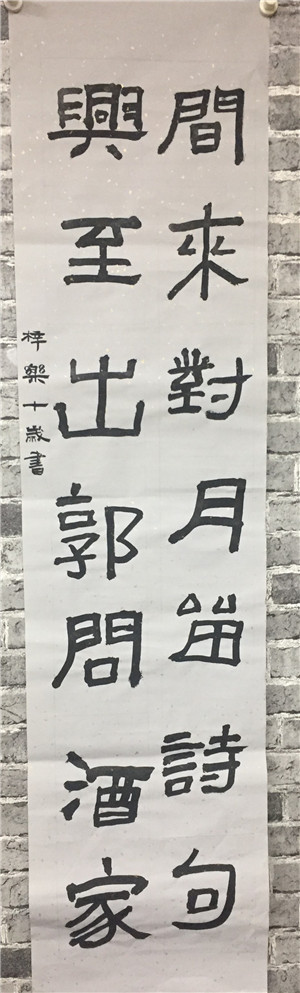 間來對月留詩句
興至出郭問酒家
梓樂十歲書